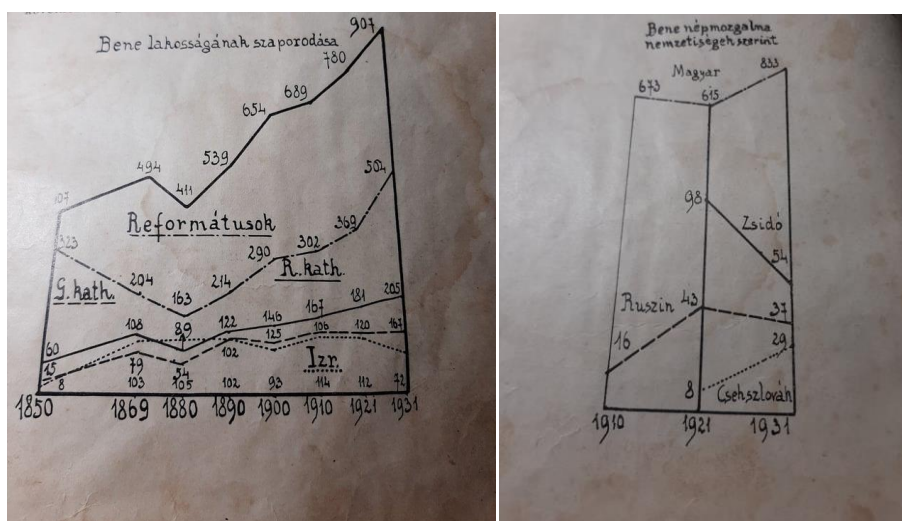 Bene lakosságának szaporodása
907
780
689
654
539
494
411
107
Reformátusok
323
204
163
214
290
302
369
504
G. kath.
R. kath.
60
108
89
122
146
167
181
205
15
79
54
102
125
106
120
167
Izr.
8
103
105
102
93
114
112
72
1850
1869
1880
1890
1900
1910
1921
1931
Bene népmozgalma
nemzetiségek szerint
Magyar
673
615
833
98
Zsidó
54
Ruszin
43
37
16
29
8
Csehszlovák
1910
1921
1931